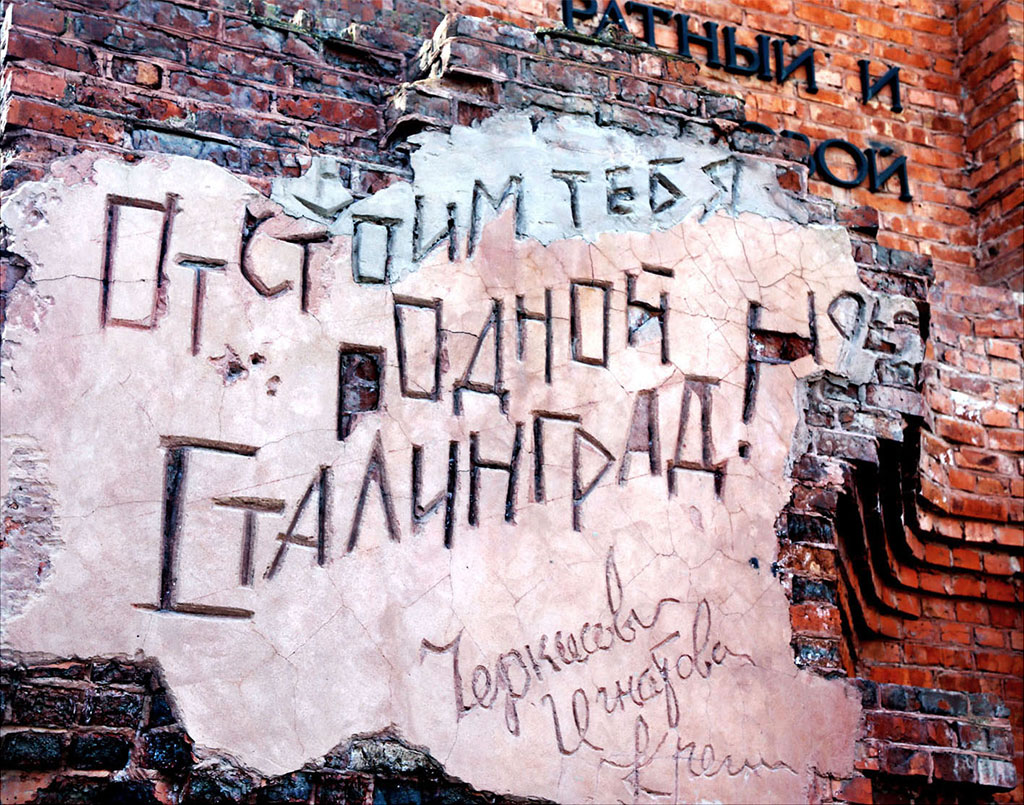 РАТНЫЙ И
ВОЙ
ОТСТОИМ ТЕБЯ
РОДНОЙ
СТАЛИНГРАД!
Черкасовы
Игнатова